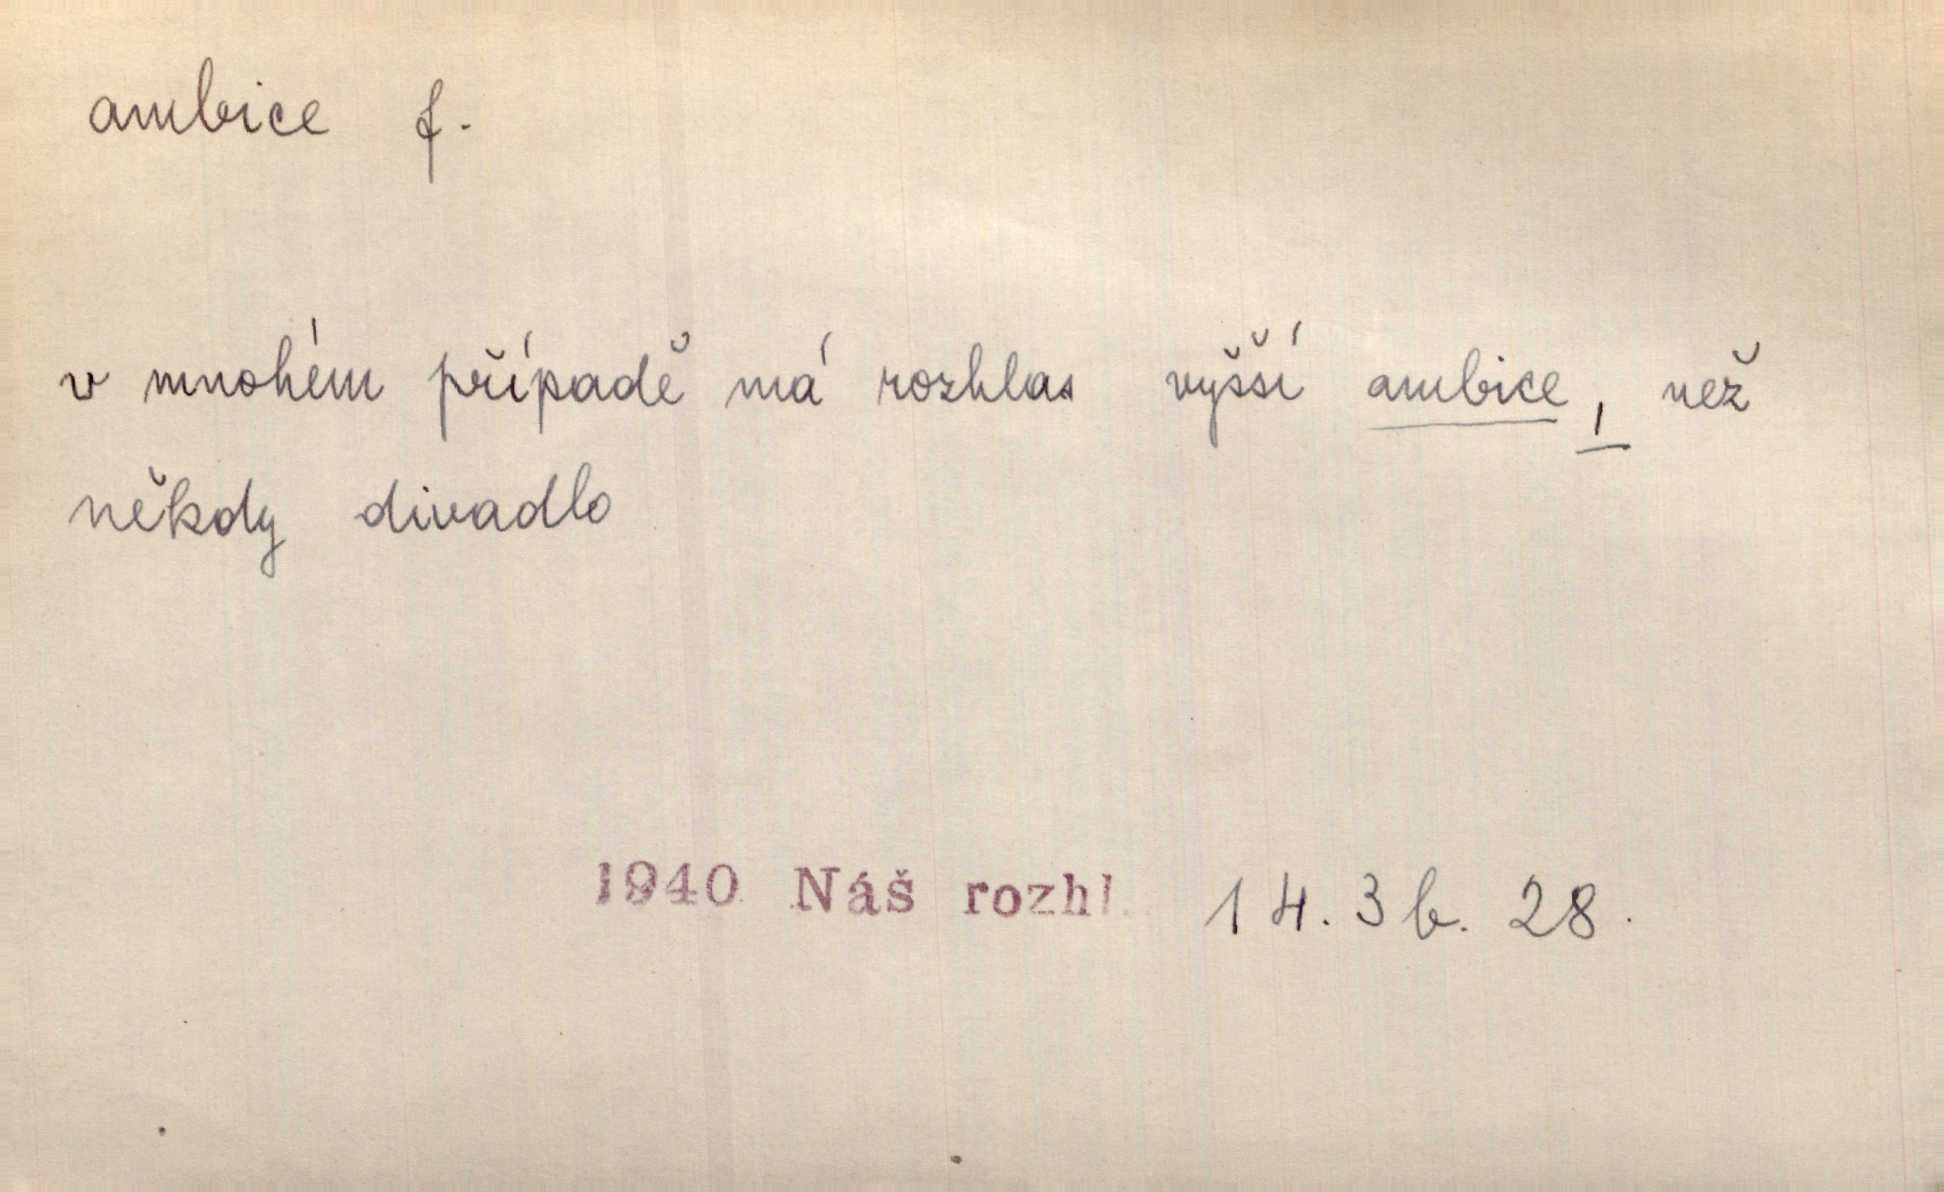 ambice f.
v mnohém případě má rozhlas vyšší ambice, než
někdy divadlo
1940 Náš rozhl. 14. 3 b. 28.